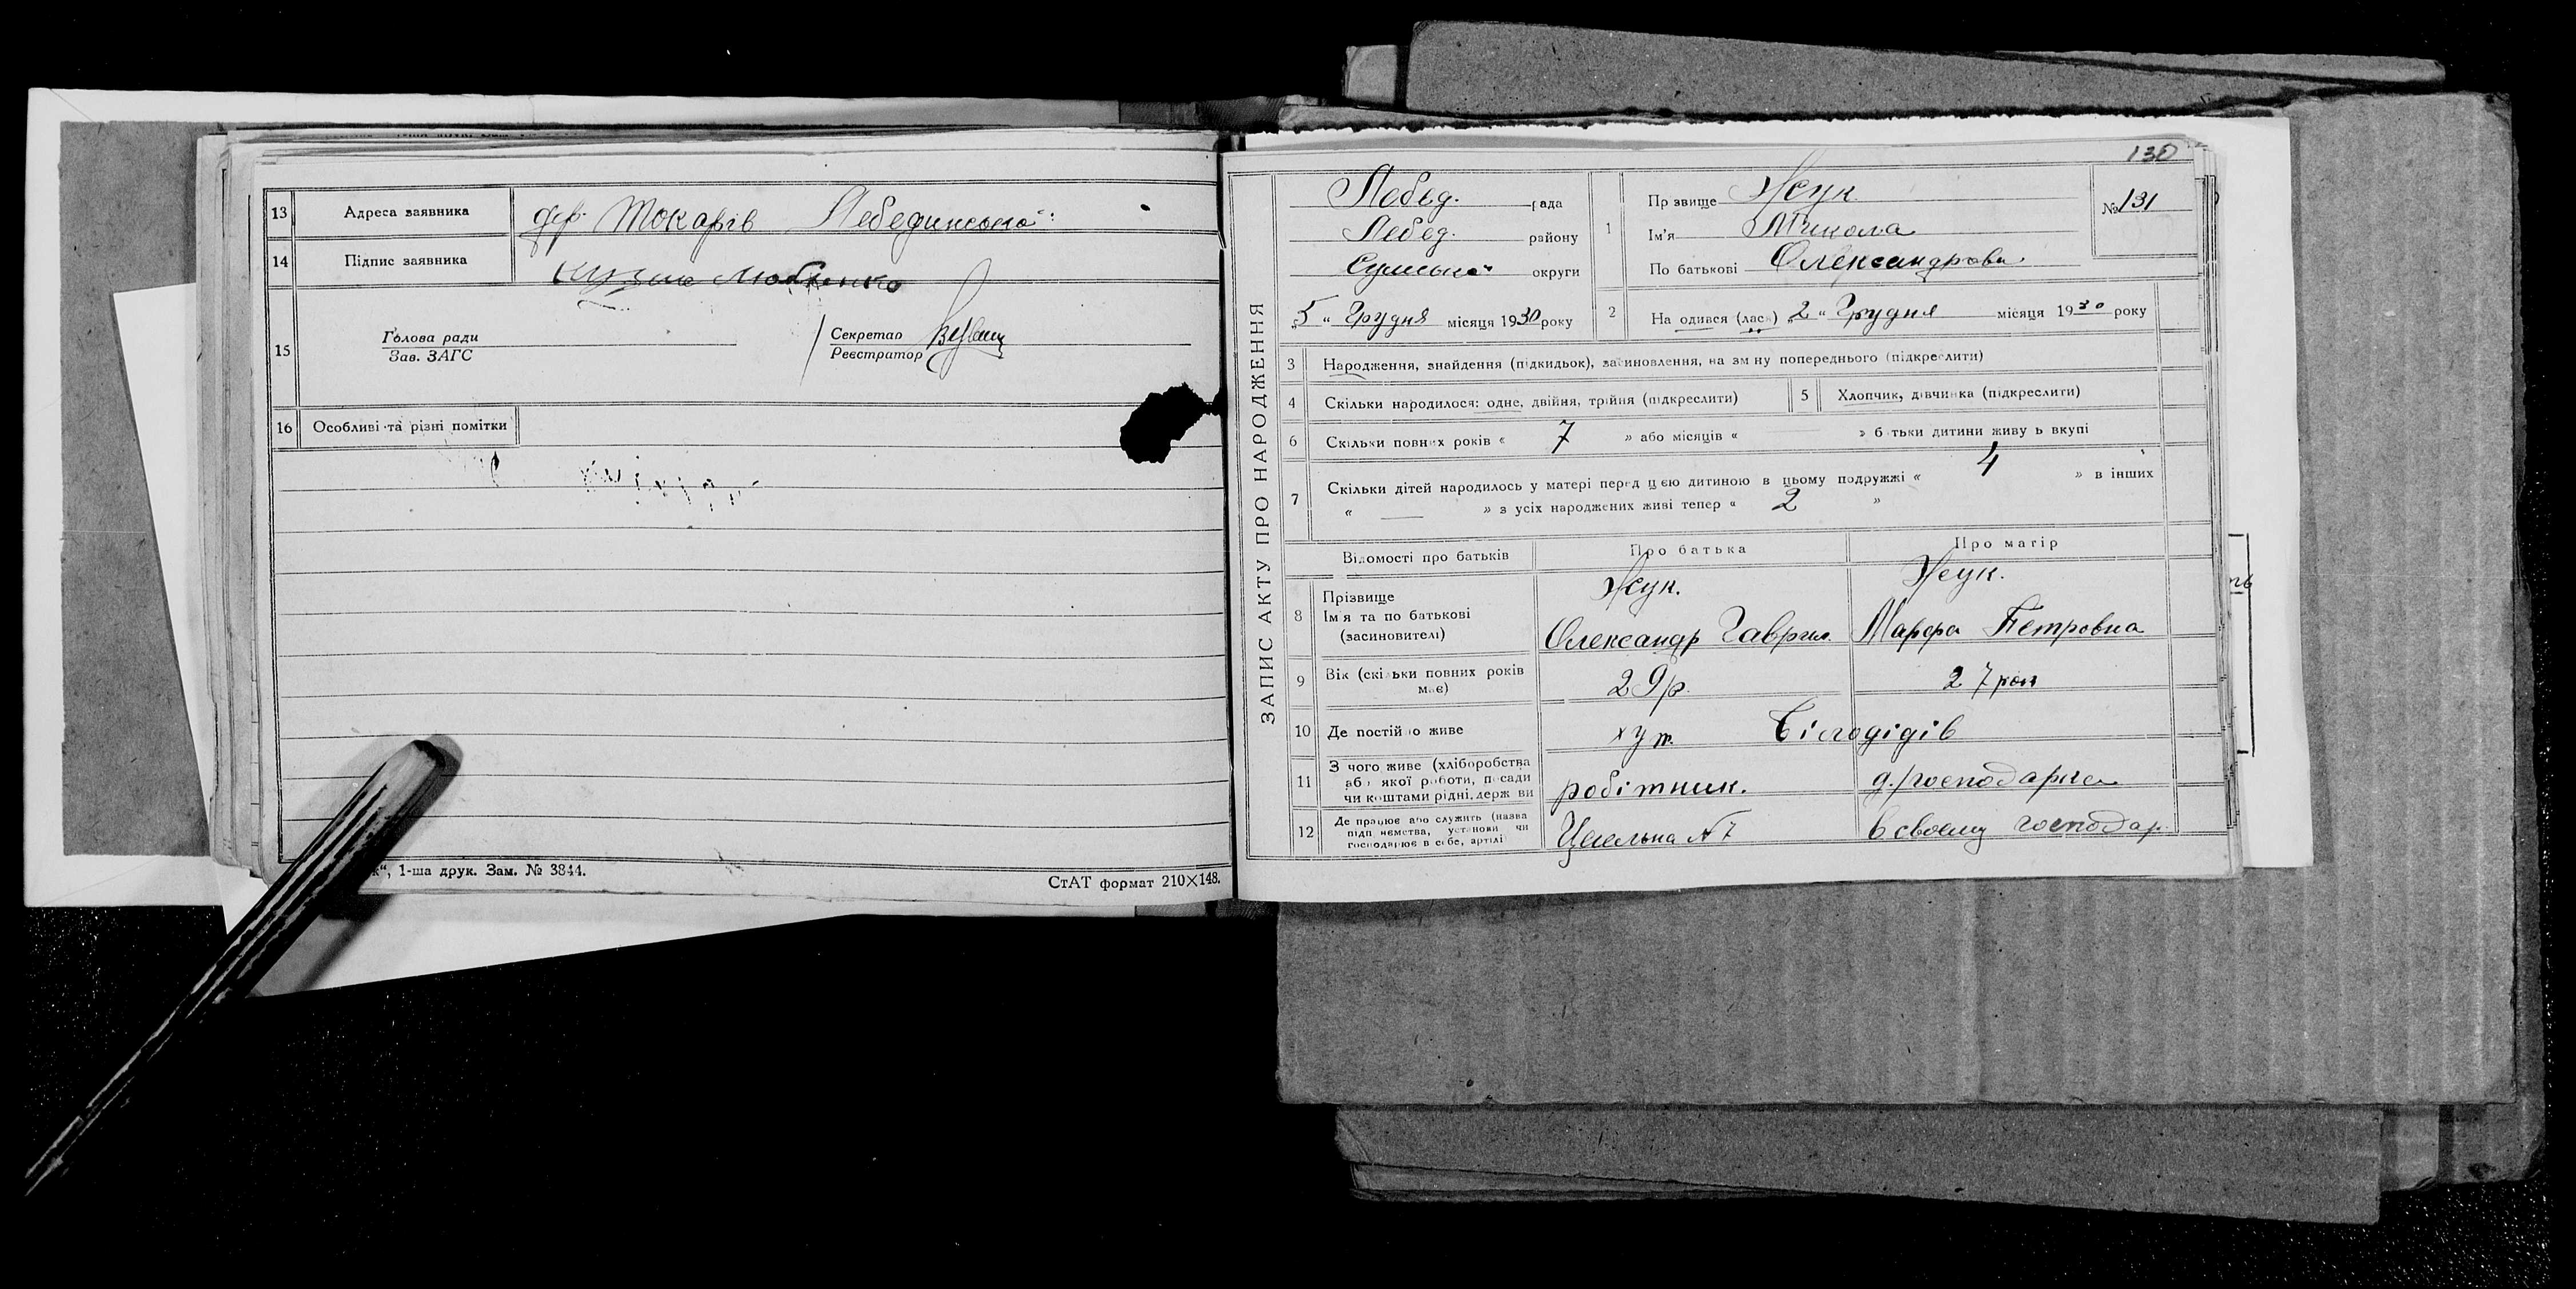 13 Адреса заявника Токарів Лебединської
14 Підпис заявника
15 Голова ради
Зав. ЗАГС
Секретар
Реєстратор
16 Особливі та різні помітки
1-ша друк. Зам. № 3844.
СтАТ формат 210×148.
130
ЗАПИС АКТУ ПРО НАРОДЖЕННЯ
Лебед. рада
Лебед. району
Сумської округи
„5“ Грудня місяця 1930 року
1 Прізвище Жук
Ім'я Микола
По батькові Олександрови
№ 131
2 Народився (лась) „2“ Грудня місяця 1930 року
3 Народження, знайдення (підкидьок), засиновлення, на зміну попереднього (підкреслити)
4 Скільки народилося: одне, двійня, трійня (підкреслити)
5 Хлопчик, дівчинка (підкреслити)
6 Скільки повних років « 7 » або місяців « — » батьки дитини живуть вкупі
7 Скільки дітей народилось у матері перед цією дитиною в цьому подружжі « 4 » в інших
« — » з усіх народжених живі тепер « 2 »
Відомості про батьків Про батька Про матір
8 Прізвище Жук. Жук.
Ім'я та по батькові
(засиновителі) Олександр Гаврил. Марфа Петровна
9 Вік (скільки повних років має) 29 р. 27 рок
10 Де постійно живе хут. Білодідів
11 З чого живе (хліборобства
або якої роботи, посади
чи коштами рідні, держави робітник. д/господарка
12 Де працює або служить (назва
підприємства, установи чи
господарює в себе, артілі Цегельна №7 в своєму господар.